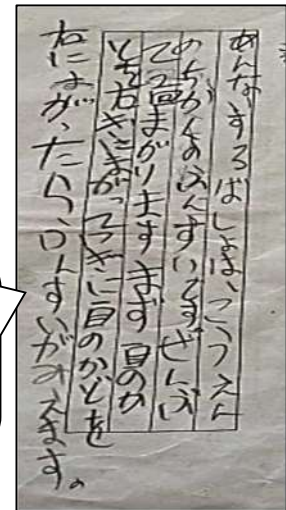 あんないするばしょは、こうえん
ふんすいですぜんぶ
回まがりますまず 目のか
どを右にまがってつぎに 目のかどを
右にまがったら、ふんすいがみえます。